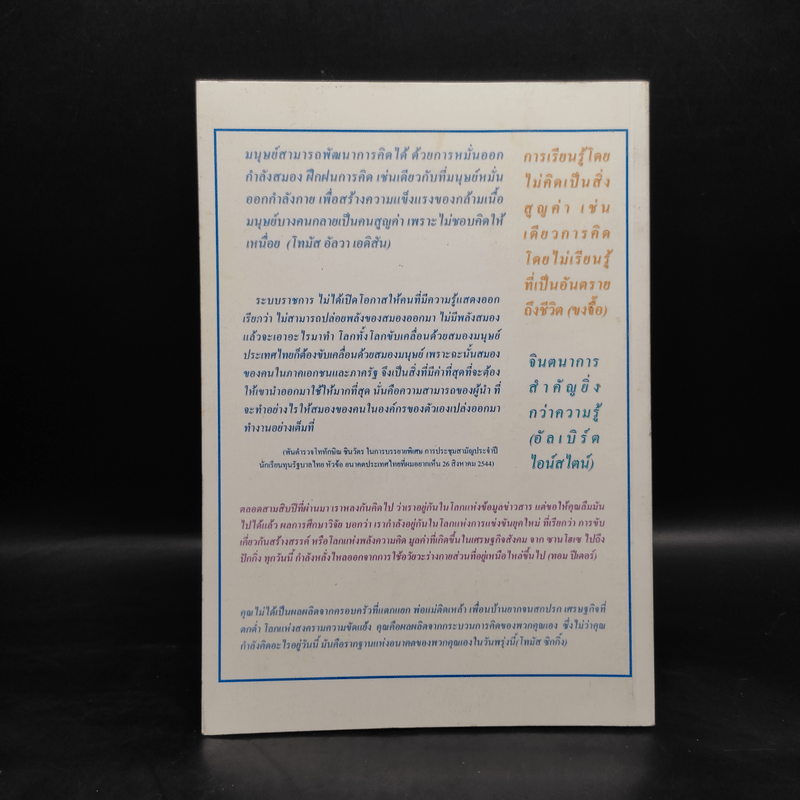 มนุษย์สามารถพัฒนาการคิดได้ ด้วยการหมั่นออก
กำลังสมอง ฝึกฝนการคิด เช่นเดียวกับที่มนุษย์หมั่น
ออกกำลังกาย เพื่อสร้างความแข็งแรงของกล้ามเนื้อ
มนุษย์บางคนกลายเป็นคนสูญค่า เพราะไม่ชอบคิดให้
เหนื่อย (โทมัส อัลวา เอดิสัน)
ระบบราชการ ไม่ได้เปิดโอกาสให้คนที่มีความรู้แสดงออก
เรียกว่า ไม่สามารถปล่อยพลังของสมองออกมา ไม่มีพลังสมอง
แล้วจะเอาอะไรมาทำ โลกทั้งโลกขับเคลื่อนด้วยสมองมนุษย์
ประเทศไทยก็ต้องขับเคลื่อนด้วยสมองมนุษย์ เพราะฉะนั้นสมอง
ของคนในภาคเอกชนและภาครัฐ จึงเป็นสิ่งที่มีค่าที่สุดที่จะต้อง
ให้เขานำออกมาใช้ให้มากที่สุด นั่นคือความสามารถของผู้นำ ที่
จะทำอย่างไรให้สมองของคนในองค์กรของตัวเองเปล่งออกมา
ทำงานอย่างเต็มที่
(พันตำรวจโททักษิณ ชินวัตร ในการบรรยายพิเศษ การประชุมสามัญประจำปี
นักเรียนทุนรัฐบาลไทย หัวข้อ อนาคตประเทศไทยที่ผมอยากเห็น 26 สิงหาคม 2544)
การเรียนรู้โดย
ไม่คิดเป็นสิ่ง
สูญค่า เช่น
เดียวการคิด
โดยไม่เรียนรู้
ที่เป็นอันตราย
ถึงชีวิต (ขงจื้อ)
จินตนาการ
สำคัญยิ่ง
กว่าความรู้
(อัลเบิร์ต
ไอน์สไตน์)
ตลอดสามสิบปีที่ผ่านมา เราหลงกันคิดไป ว่าเราอยู่กันในโลกแห่งข้อมูลข่าวสาร แต่ขอให้คุณลืมมัน
ไปได้แล้ว ผลการศึกษาวิจัย บอกว่า เรากำลังอยู่กันในโลกแห่งการแข่งขันยุคใหม่ ที่เรียกว่า การขับ
เคี่ยวกันสร้างสรรค์ หรือโลกแห่งพลังความคิด มูลค่าที่เกิดขึ้นในเศรษฐกิจสังคม จาก ซานโฮเซ ไปถึง
ปักกิ่ง ทุกวันนี้ กำลังหลั่งไหลออกจากการใช้อวัยวะร่างกายส่วนที่อยู่เหนือไหล่ขึ้นไป (ทอม ปีเตอร์)
คุณไม่ได้เป็นผลผลิตจากครอบครัวที่แตกแยก พ่อแม่ติดเหล้า เพื่อนบ้านยากจนสกปรก เศรษฐกิจที่
ตกต่ำ โลกแห่งสงครามความขัดแย้ง คุณคือผลผลิตจากกระบวนการคิดของพวกคุณเอง ซึ่งไม่ว่าคุณ
กำลังคิดอะไรอยู่วันนี้ มันคือรากฐานแห่งอนาคตของพวกคุณเองในวันพรุ่งนี้(โทมัส ซิกกิ้ง)